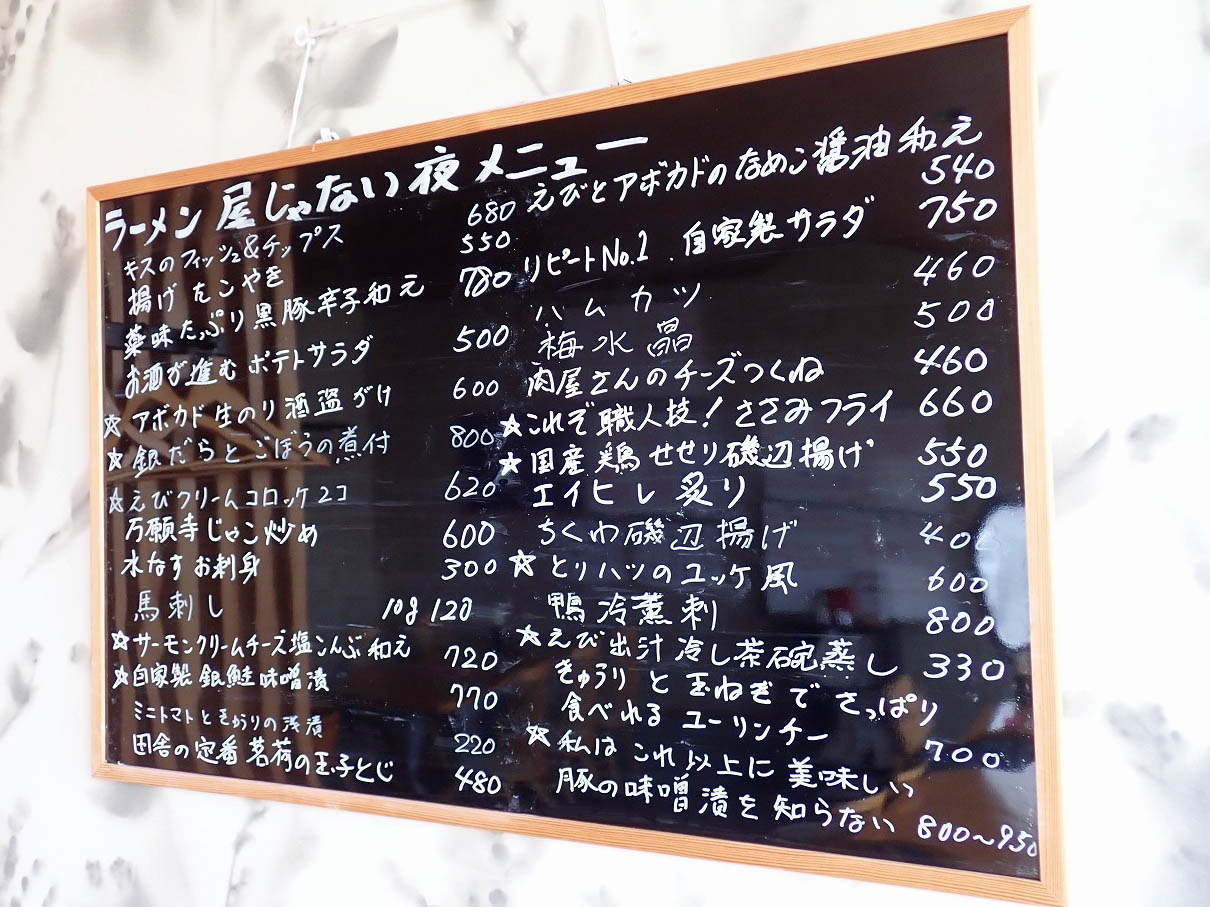 ラーメン屋じゃない夜メニュー
キスのフィッシュ&チップス 680
揚げたこやき 550
薬味たっぷり黒豚辛子和え 780
お酒が進むポテトサラダ 500
☆アボカド生のり酒盗がけ 600
☆銀だらとごぼうの煮付 800
☆えびクリームコロッケ2コ 620
万願寺じゃこ炒め 600
水なすお刺身 300
馬刺し 10g 120
☆サーモンクリームチーズ塩こんぶ和え 720
☆自家製銀鮭味噌漬 770
ミニトマトときゅうりの浅漬 220
田舎の定番茗荷の玉子とじ 480
えびとアボカドのなめこ醤油和え 540
リピートNo.1 自家製サラダ 750
ハムカツ 460
梅水晶 500
肉屋さんのチーズつくね 460
☆これぞ職人技!ささみフライ 660
☆国産鶏せせり磯辺揚げ 550
エイヒレ炙り 550
ちくわ磯辺揚げ 400
☆とりハツのユッケ風 600
鴨冷薫刺 800
☆えび出汁冷し茶碗蒸し 330
きゅうりと玉ねぎでさっぱり
食べれるユーリンチー 700
☆私はこれ以上に美味しい
豚の味噌漬を知らない 800~950